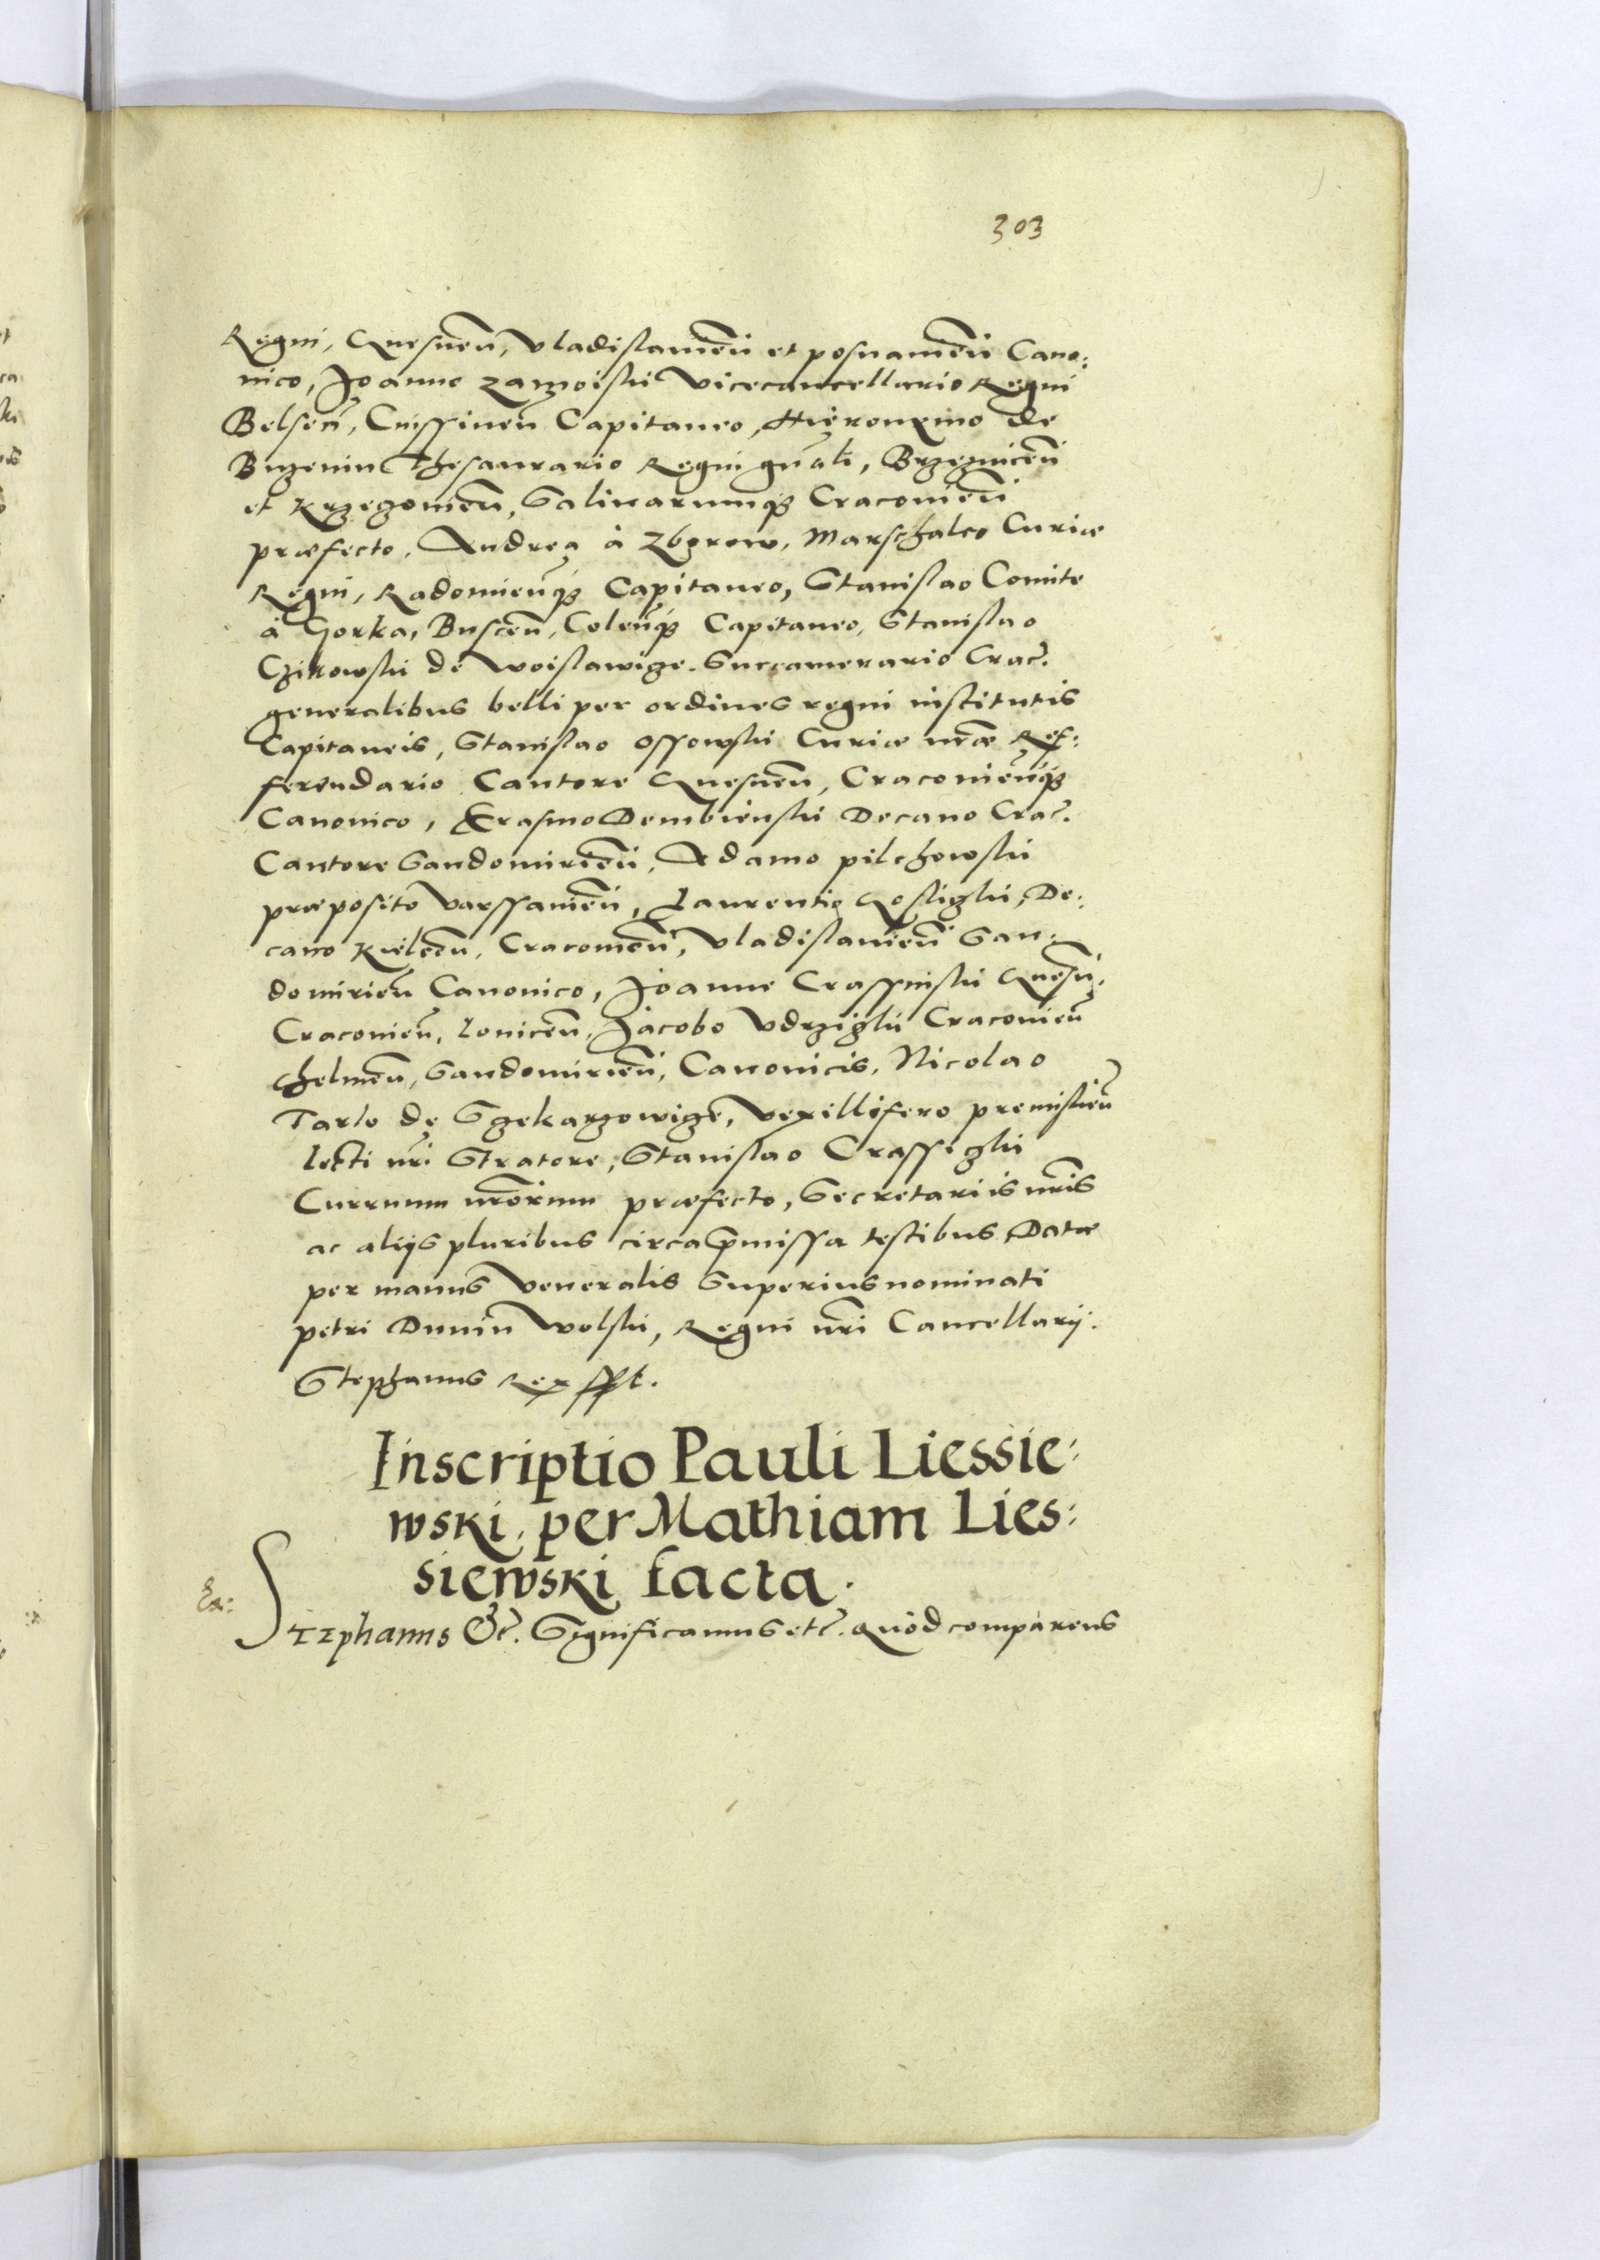 303
Regni, Gnesnen, Vladislavien et posnanien Cano:
nico, Joanne Zamoiski Vicecancellario Regni
Belsen, Cnissinen Capitaneo, Hieronymo de
Buzenin Thesaurario Regni gnali, Brzeznicen
et Krzeczovien, Salinarumq Cracovien
præfecto, Andrea à Zborow, Marschalco Curiæ
Regni, Radomienq Capitaneo, Stanislao Comite
à Gorka, Buscen, Colenq Capitaneo, Stanislao
Czikowski de Woislawize. Succamerario Crac.
generalibus belli per ordines regni institutis
Capitaneis, Stanislao Ossowski Curiæ nræ Ref:
ferendario Cantore Gnesnen, Cracovienq
Canonico, Erasmo Dembienski Decano Crac.
Cantore Sandomirien, Adamo pilchowski
præposito Varssavien, Laurentio Gosliczki, De:
cano Kielcen, Cracovien, Vladislavien San:
domirien Canonico, Joanne Crassinski Gnesn.
Cracovien, Lovicen, Jacobo Vdrziczki Cracovien
Chelmen, Sandomirien, Canonicis, Nicolao
Tarlo de Szekarzowize, Vexillifero premislien
lecti nri Stratore, Stanislao Crassiczki
Curruum nrorum præfecto, Secretariis nris
ac aliis pluribus circa pmissa testibus, Datæ
per manus Veneralis Superius nominati
petri Dunin Wolski, Regni nri Cancellarij.
Stephanus Rex sspt.
Inscriptio Pauli Liessie:
wski. per Mathiam Lies:
siewski facta.
Ex:
Stephanus &c. Significamus etc. Quod comparens